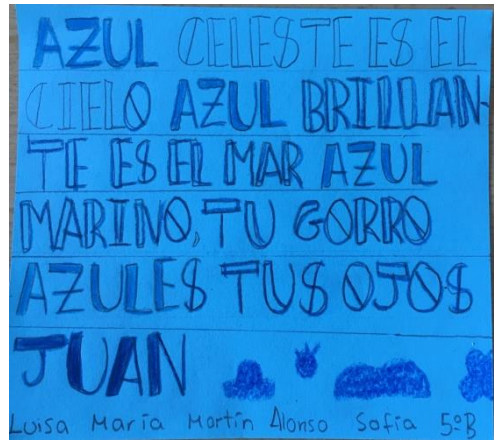 AZUL CELESTE ES EL
CIELO AZUL BRILLAN-
TE ES EL MAR AZUL
MARINO, TU GORRO
AZULES TUS OJOS
JUAN
Luisa María Martín Alonso Sofía 5ºB